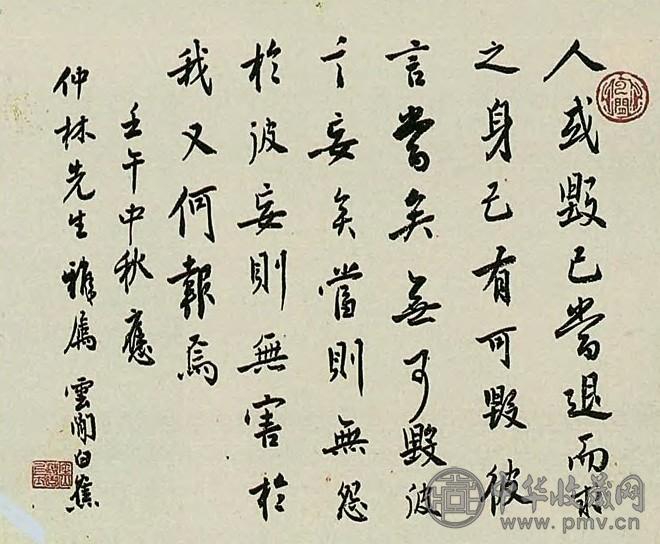 人或毀己當退而求
之身己有可毀彼
言當矣無可毀彼
言妄矣當則無怨
於彼妄則無害於
我又何報焉
壬午中秋應
仲林先生雅屬 雲間白蕉
中华收藏网
www.pmv.cn